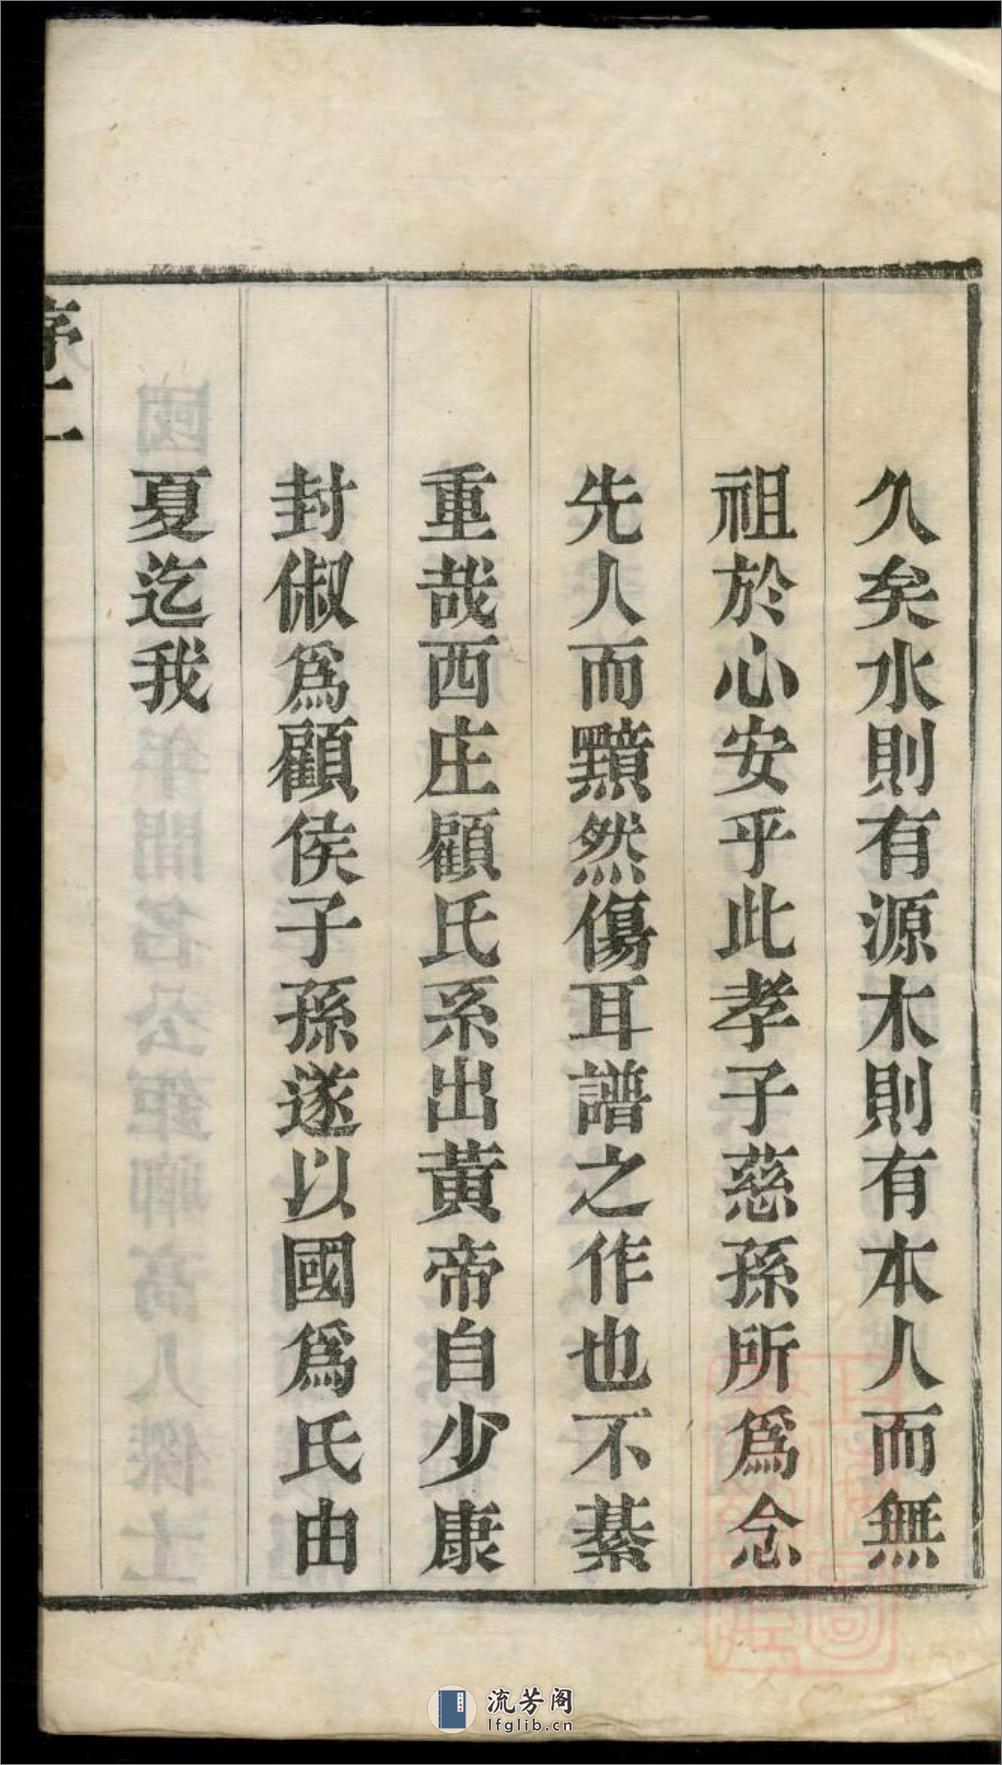 久矣水則有源木則有本人而無
祖於心安乎此孝子慈孫所爲念
先人而黯然傷耳譜之作也不綦
重哉西庄顧氏系出黄帝自少康
封俶爲顧侯子孫遂以國爲氏由
夏迄我
流芳阁
lfglib.cn